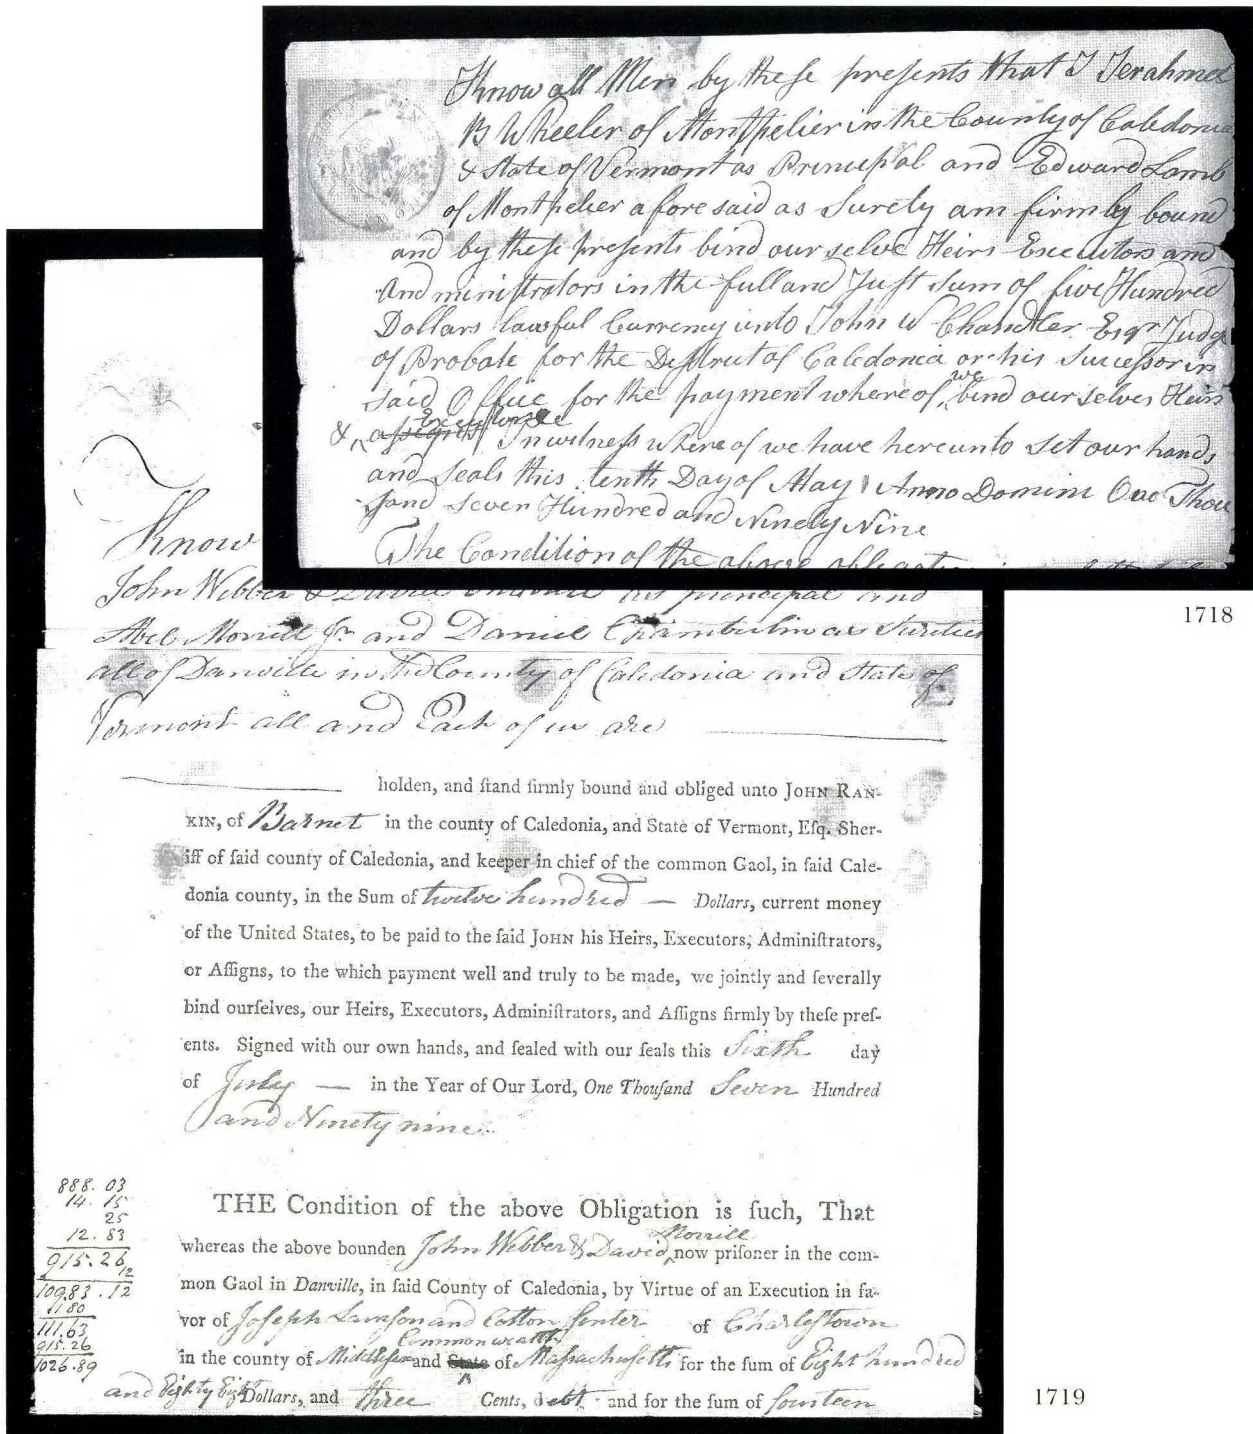 Know all Men by these presents that I Jerahmel
B Wheeler of Montpelier in the County of Caledonia
& State of Vermont as Principal and Edward Lamb
of Montpelier afore said as Surety am firmly bound
and by these presents bind our selve Heirs Executors and
Andministrators in the full and Just Sum of five Hundred
Dollars lawful Currency unto John W Chandler Esqr Judge
of Probate for the Destrect of Caledonia or his Successor in
said Office for the payment where of we bind our selves Heirs
& assigns In witness where of we have hereunto set our hands
and seals this tenth Day of May Anno Domini One Thou
sand Seven Hundred and Ninety Nine
The Condition of the above obligation
1718
Know
John Webber & David as principal and
Abel Morrill Jr. and Daniel Chamberlin as Sureties
all of Danville in the County of Caledonia and State of
Vermont all and Each of us are
holden, and ſtand firmly bound and obliged unto JOHN RAN-
KIN, of Barnet in the county of Caledonia, and State of Vermont, Eſq. Sher-
iff of ſaid county of Caledonia, and keeper in chief of the common Gaol, in ſaid Cale-
donia county, in the Sum of twelve hundred — Dollars, current money
of the United States, to be paid to the ſaid JOHN his Heirs, Executors, Adminiſtrators,
or Aſſigns, to the which payment well and truly to be made, we jointly and ſeverally
bind ourſelves, our Heirs, Executors, Adminiſtrators, and Aſſigns firmly by theſe preſ-
ents. Signed with our own hands, and ſealed with our ſeals this Sixth day
of July — in the Year of Our Lord, One Thouſand Seven Hundred
and Ninety nine
888.03
14.15
25
12.83
915.26
12
10983.12
1180
111.63
915.26
1026.89
THE Condition of the above Obligation is ſuch, That
whereas the above bounden John Webber & David Morrill now priſoner in the com-
mon Gaol in Danville, in ſaid County of Caledonia, by Virtue of an Execution in fa-
vor of Joseph Lamson and Cotton Senter of Charlestown
in the county of Middlesex and State Commonwealth of Massachusetts for the ſum of Eight hundred
and Eighty Eight Dollars, and three Cents, debt and for the ſum of fourteen
1719